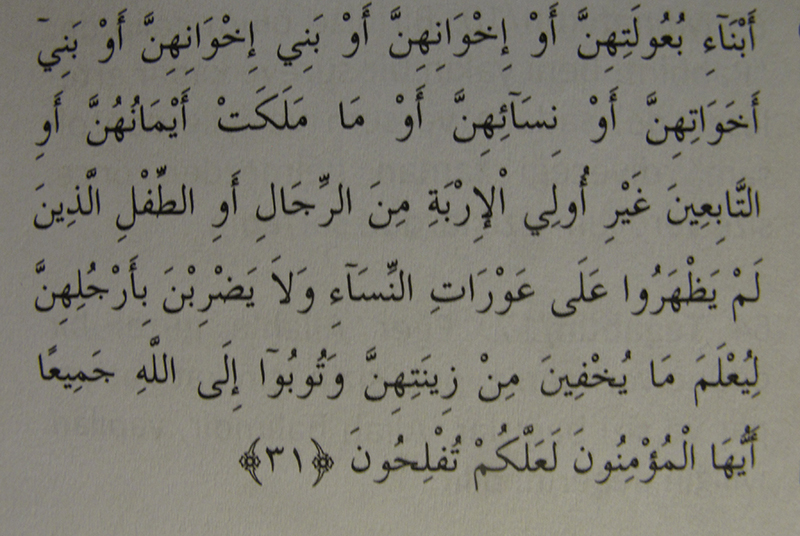 أَبْنَآءِ بُعُولَتِهِنَّ أَوْ إِخْوَانِهِنَّ أَوْ بَنِي إِخْوَانِهِنَّ أَوْ بَنِيٓ
أَخَوَاتِهِنَّ أَوْ نِسَآئِهِنَّ أَوْ مَا مَلَكَتْ أَيْمَانُهُنَّ أَوِ
التَّابِعِينَ غَيْرِ أُولِي الْإِرْبَةِ مِنَ الرِّجَالِ أَوِ الطِّفْلِ الَّذِينَ
لَمْ يَظْهَرُوا عَلَى عَوْرَاتِ النِّسَآءِ وَلاَ يَضْرِبْنَ بِأَرْجُلِهِنَّ
لِيُعْلَمَ مَا يُخْفِينَ مِنْ زِينَتِهِنَّ وَتُوبُوٓا إِلَى اللَّهِ جَمِيعًا
أَيُّهَا الْمُؤْمِنُونَ لَعَلَّكُمْ تُفْلِحُونَ ﴿٣١﴾